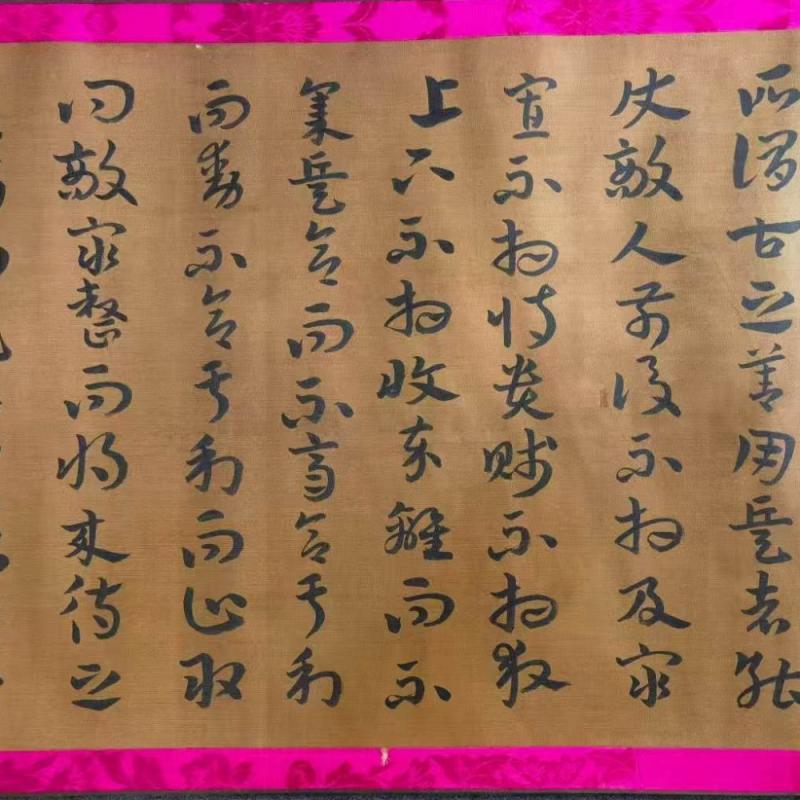 所謂古之善用兵者能
使敵人前後不相及眾
寡不相恃貴賤不相救
上下不相收卒離而不
集兵合而不齊合於利
而動不合於利而止敢
問敵眾整而將來待之